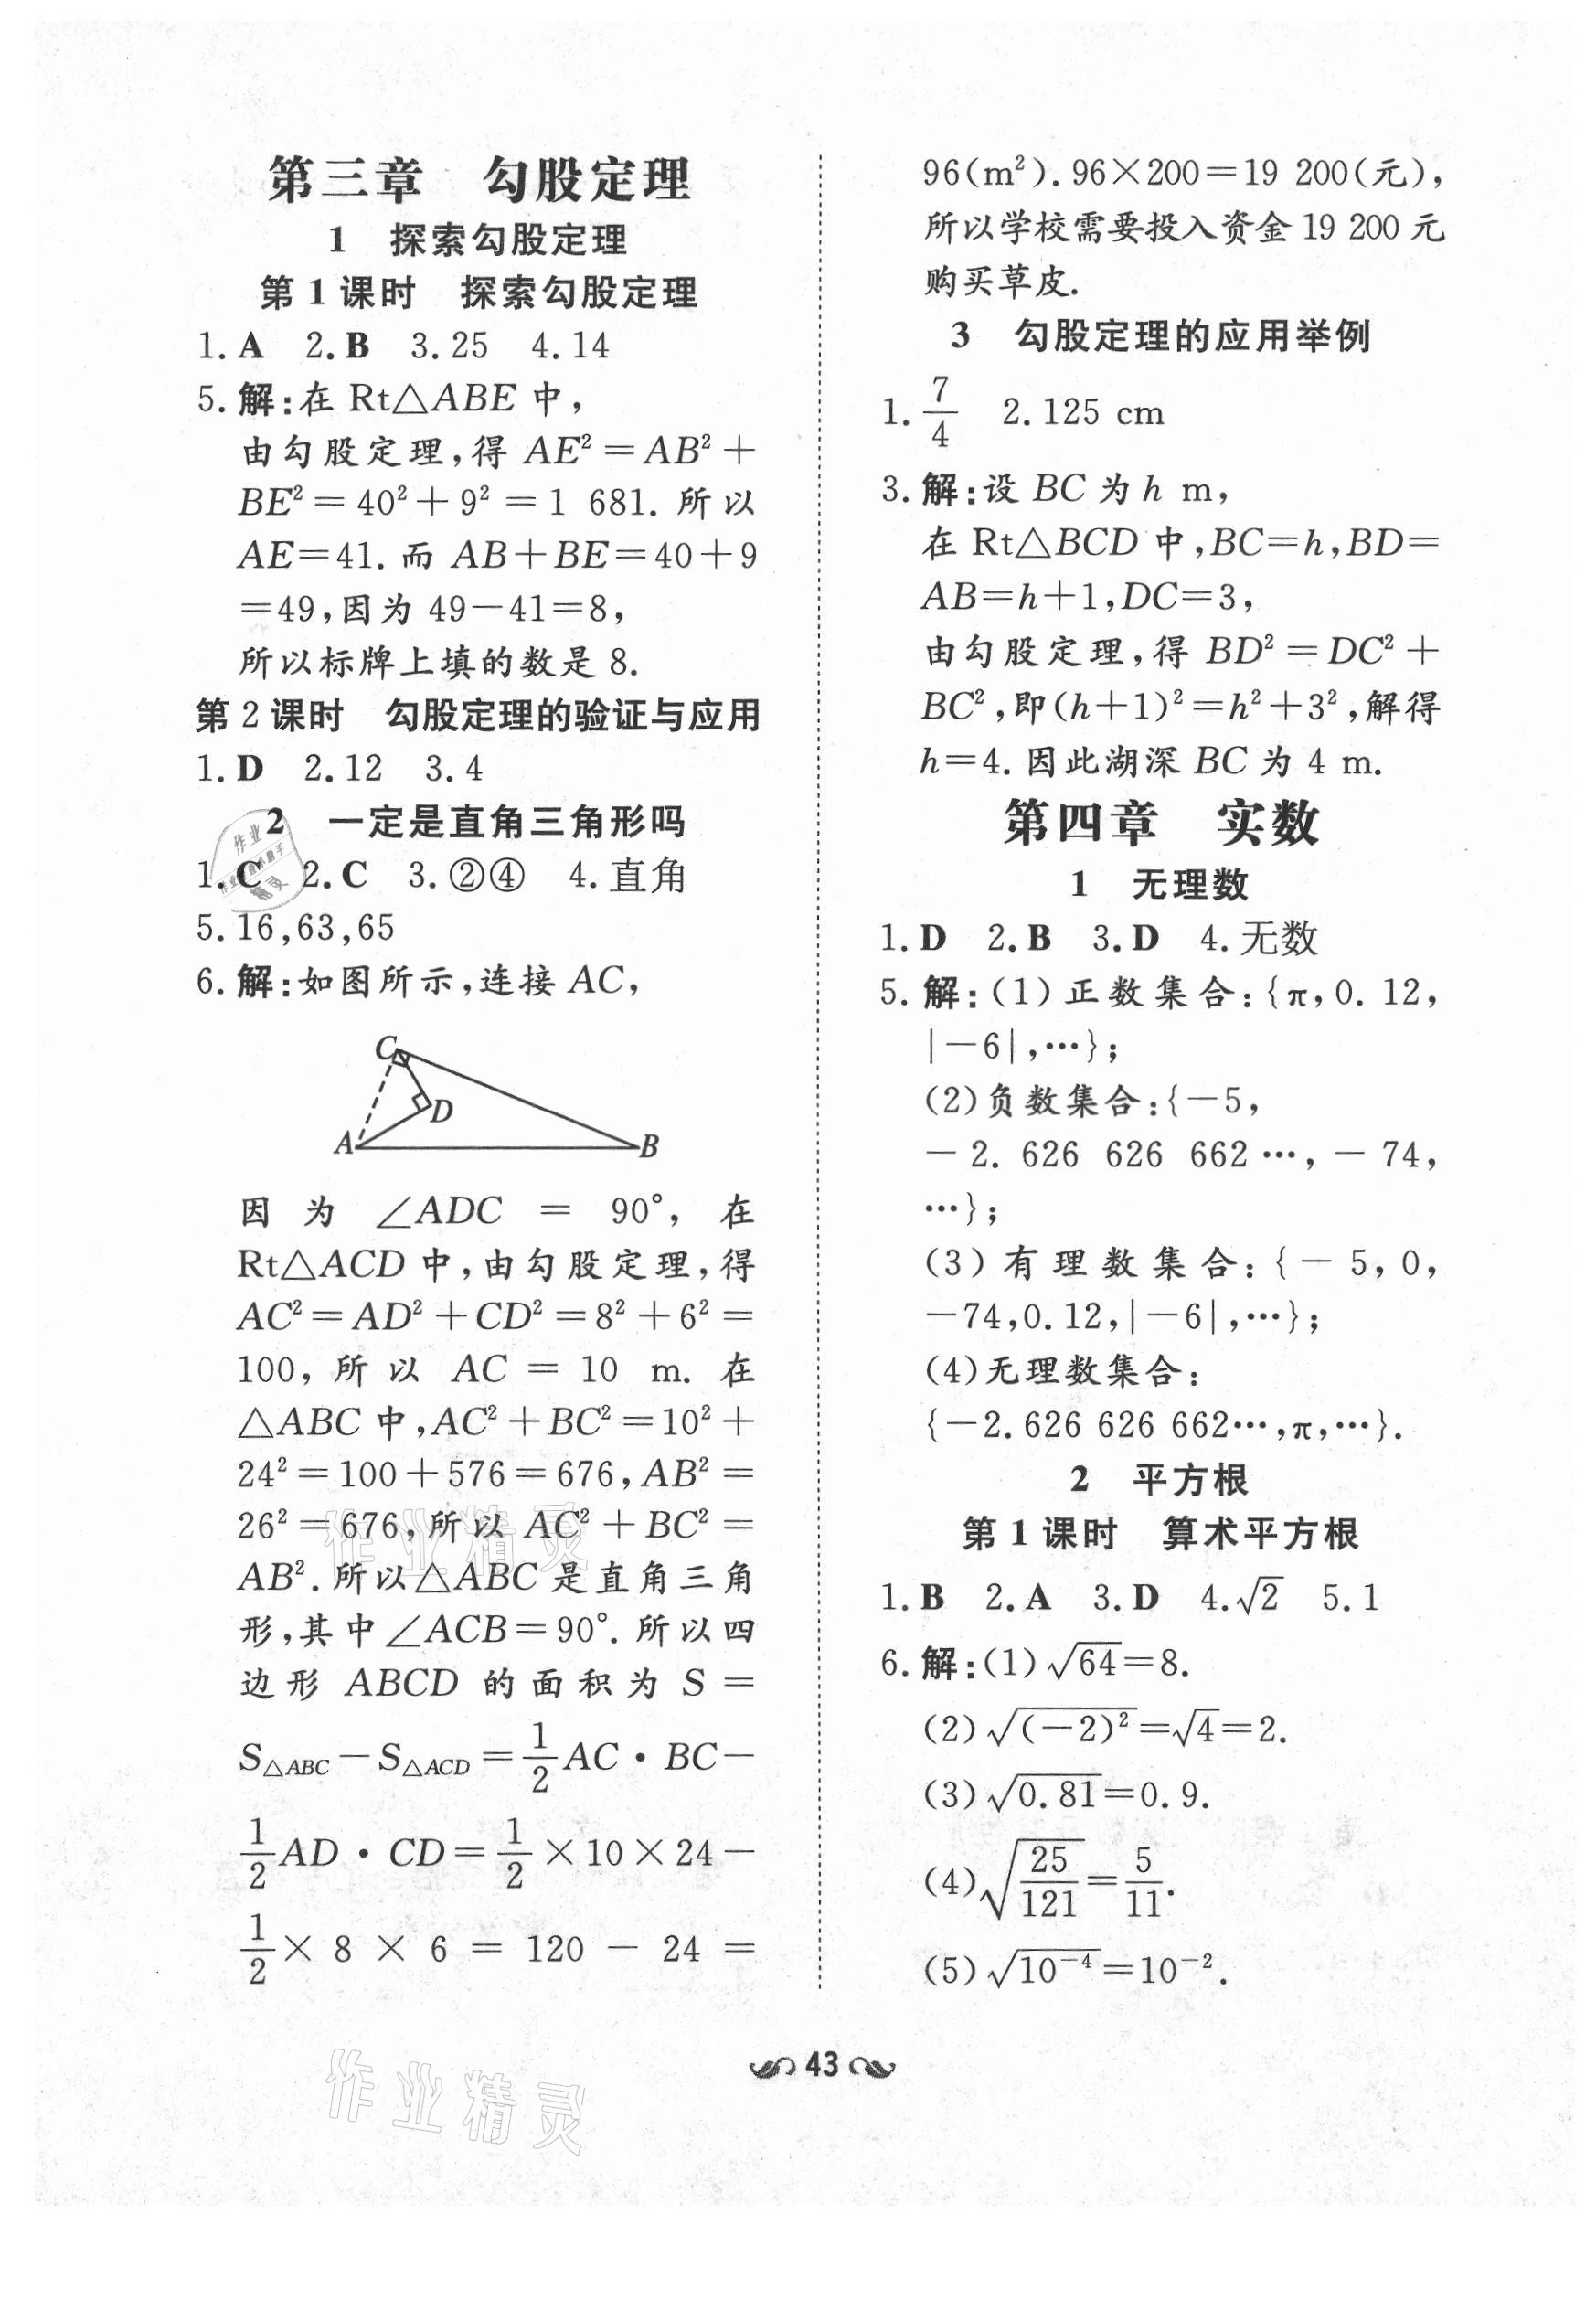 第三章 勾股定理
1 探索勾股定理
第1课时 探索勾股定理
1.A 2.B 3.25 4.14
5.解:在 Rt△ABE 中,
由勾股定理,得 AE²=AB²+
BE²=40²+9²=1 681.所以
AE=41.而 AB+BE=40+9
=49,因为 49-41=8,
所以标牌上填的数是 8.
第2课时 勾股定理的验证与应用
1.D 2.12 3.4
2 一定是直角三角形吗
1.C 2.C 3.②④ 4.直角
5.16,63,65
6.解:如图所示,连接 AC,
C
D
A
B
因为∠ADC=90°,在
Rt△ACD 中,由勾股定理,得
AC²=AD²+CD²=8²+6²=
100,所以 AC=10 m.在
△ABC 中,AC²+BC²=10²+
24²=100+576=676,AB²=
26²=676,所以 AC²+BC²=
AB².所以△ABC 是直角三角
形,其中∠ACB=90°.所以四
边形 ABCD 的面积为 S=
S△ABC-S△ACD=1/2 AC·BC-
1/2 AD·CD=1/2×10×24-
1/2×8×6=120-24=
96(m²).96×200=19 200(元),
所以学校需要投入资金 19 200 元
购买草皮.
3 勾股定理的应用举例
1.7/4 2.125 cm
3.解:设 BC 为 h m,
在 Rt△BCD 中,BC=h,BD=
AB=h+1,DC=3,
由勾股定理,得 BD²=DC²+
BC²,即(h+1)²=h²+3²,解得
h=4.因此湖深 BC 为 4 m.
第四章 实数
1 无理数
1.D 2.B 3.D 4.无数
5.解:(1)正数集合:{π,0.12,
|-6|,…};
(2)负数集合:{-5,
-2.626 626 662…,-74,
…};
(3)有理数集合:{-5,0,
-74,0.12,|-6|,…};
(4)无理数集合:
{-2.626 626 662…,π,…}.
2 平方根
第1课时 算术平方根
1.B 2.A 3.D 4.√2 5.1
6.解:(1)√64=8.
(2)√(-2)²=√4=2.
(3)√0.81=0.9.
(4)√25/121=5/11.
(5)√10⁻⁴=10⁻².
43
作业精灵
作业精灵